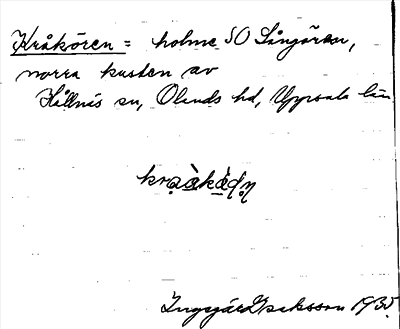 Kråkören = holme SO Långören,
norra kusten av
Hållnäs sn, Olands hd, Uppsala län
Ingegärd Isaksson 1935